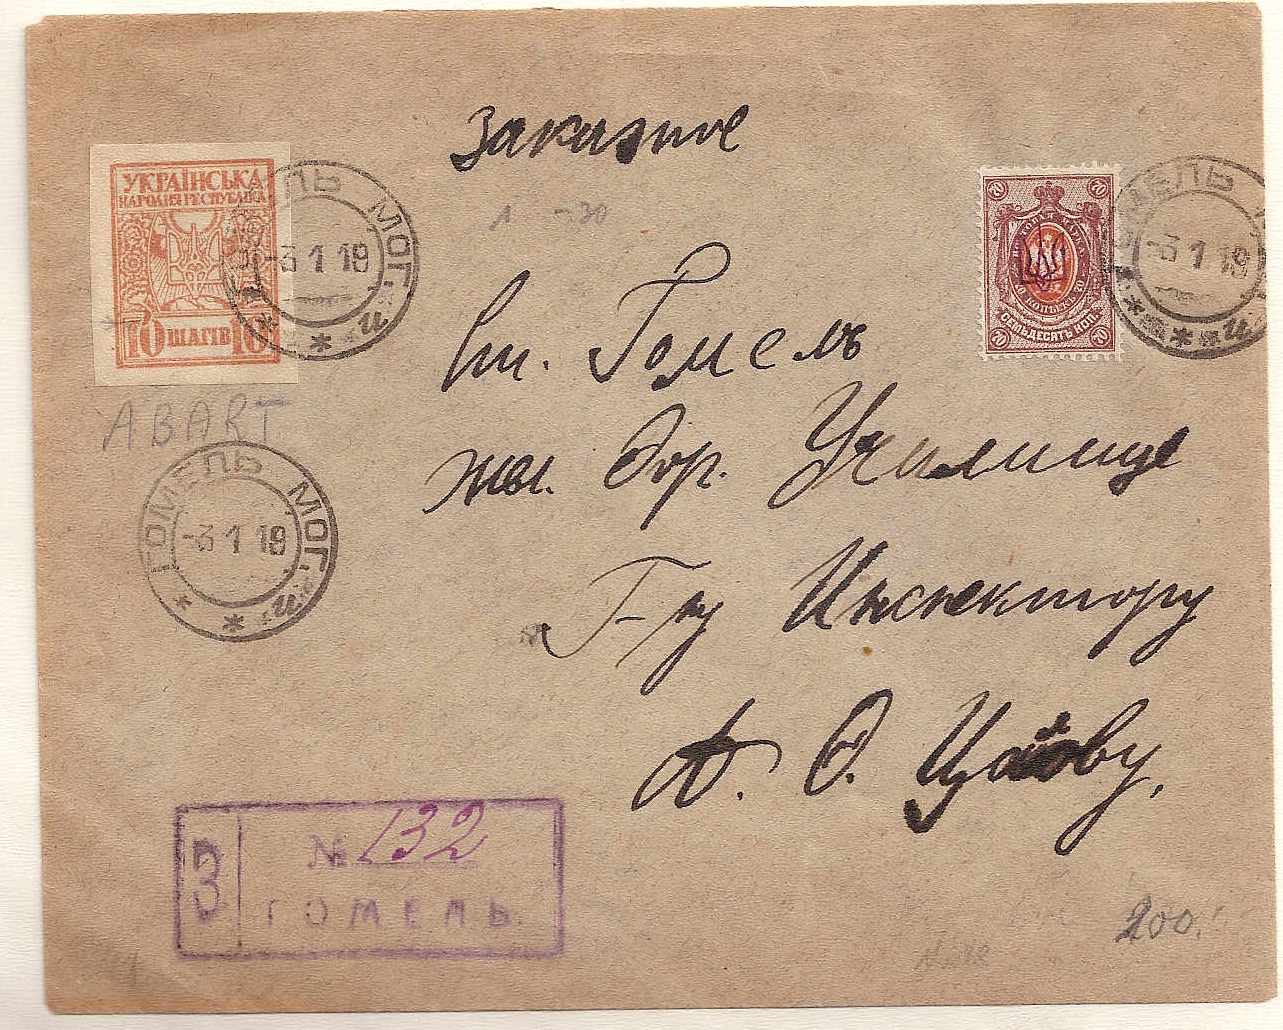 Заказное
1 - 20
УКРАЇНСЬКА
НАРОДНЯ РЕСПУБЛІКА
10 ШАГІВ 10
МОГ. "и"
-3 1 19
70 70
СЕМЬДЕСЯТЬ КОП.
70 70
МЕЛЬ
-3 1 19
"и"
ABART
ГОМЕЛЬ МОГ. "и"
-3 1 19
вт. Гомель
жел. дор. Училище
Г-ну Инспектору
А. О.
З
№ 132
ГОМЕЛЬ
200.